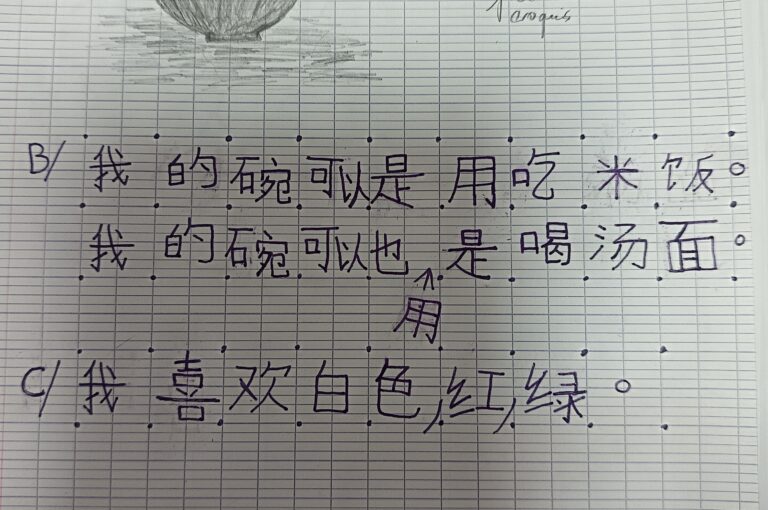 croquis
B/ 我的碗可以是用吃米饭。
我的碗可以也是喝汤面。
↑
用
C/ 我喜欢白色,红,绿。